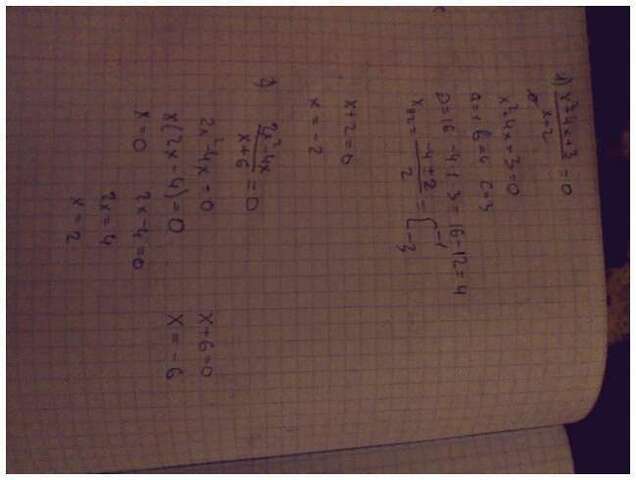 1) x²+4x+3 / x+2 = 0
x²+4x+3=0
a=1 b=4 c=3
D=16-4·1·3=16-12=4
x₁,₂ = -4±2 / 2 = { -1 -3
x+2=0
x=-2
2) 2x²-4x / x+6 = 0
2x²-4x=0 x+6=0
x(2x-4)=0 x=-6
x=0 2x-4=0
2x=4
x=2